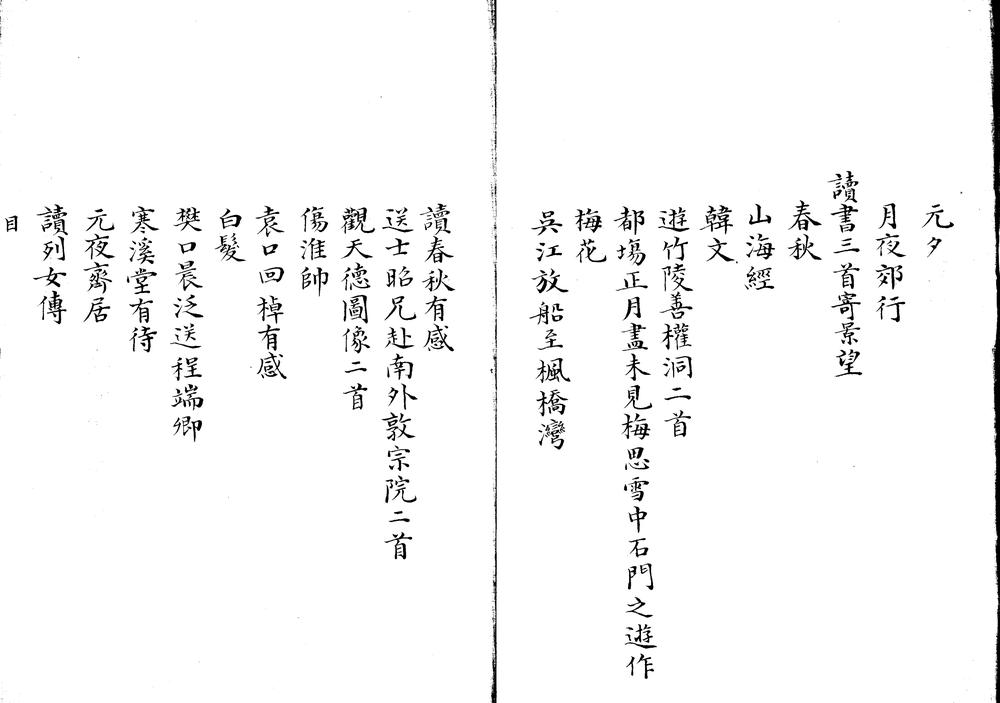 元夕
月夜郊行
讀書三首寄景望
春秋
山海經
韓文
遊竹陵善權洞二首
都場正月盡未見梅思雪中石門之遊作
梅花
吳江放船至楓橋灣
讀春秋有感
送士昭兄赴南外敦宗院二首
觀天德圖像二首
傷淮帥
袁口回棹有感
白髮
樊口晨泛送程端卿
寒溪堂有待
元夜齋居
讀列女傳
目